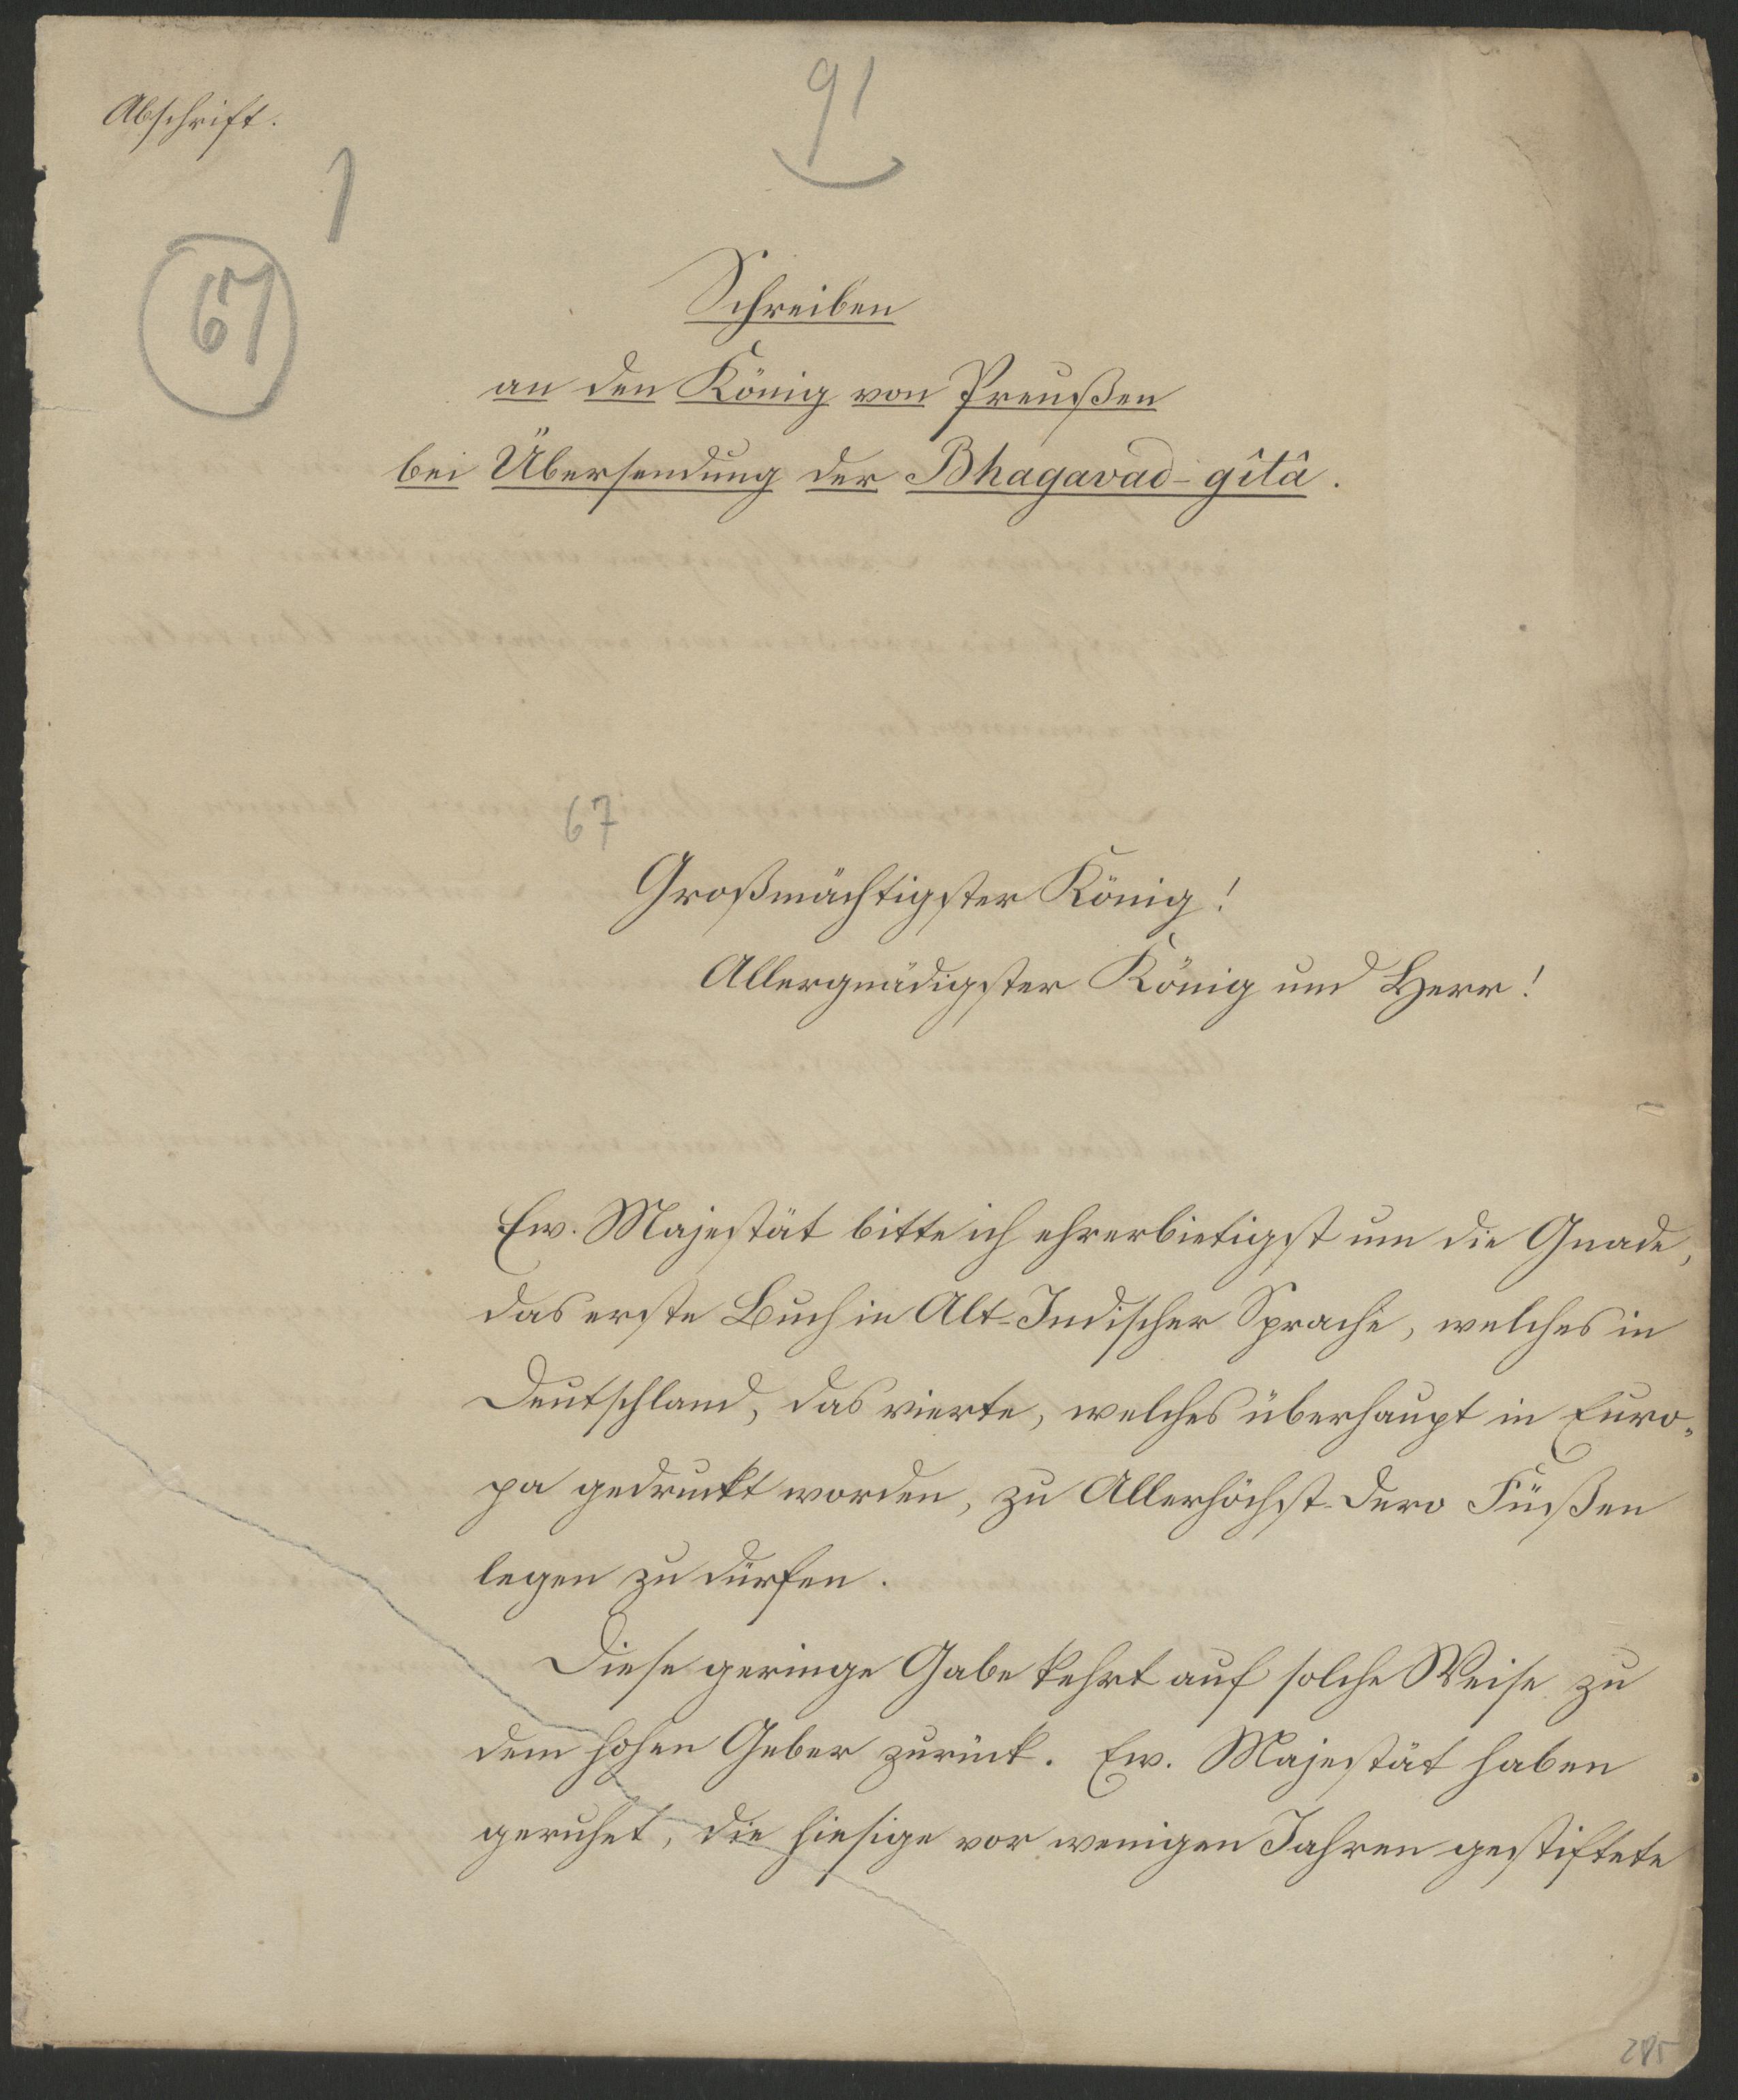 91
Abschrift.
1
67
Schreiben
an den König von Preußen
bei Übersendung der Bhagavad-gîtâ.
67
Großmächtigster König!
Allergnädigster König und Herr!
Ew. Majestät bitte ich ehrerbietigst um die Gnade,
das erste Buch in Alt-Indischer Sprache, welches in
Deutschland, das vierte, welches überhaupt in Euro-
pa gedruckt worden, zu Allerhöchst-Dero Füßen
legen zu dürfen.
Diese geringe Gabe kehrt auf solche Weise zu
dem hohen Geber zurück. Ew. Majestät haben
geruhet, die hiesige vor wenigen Jahren gestiftete